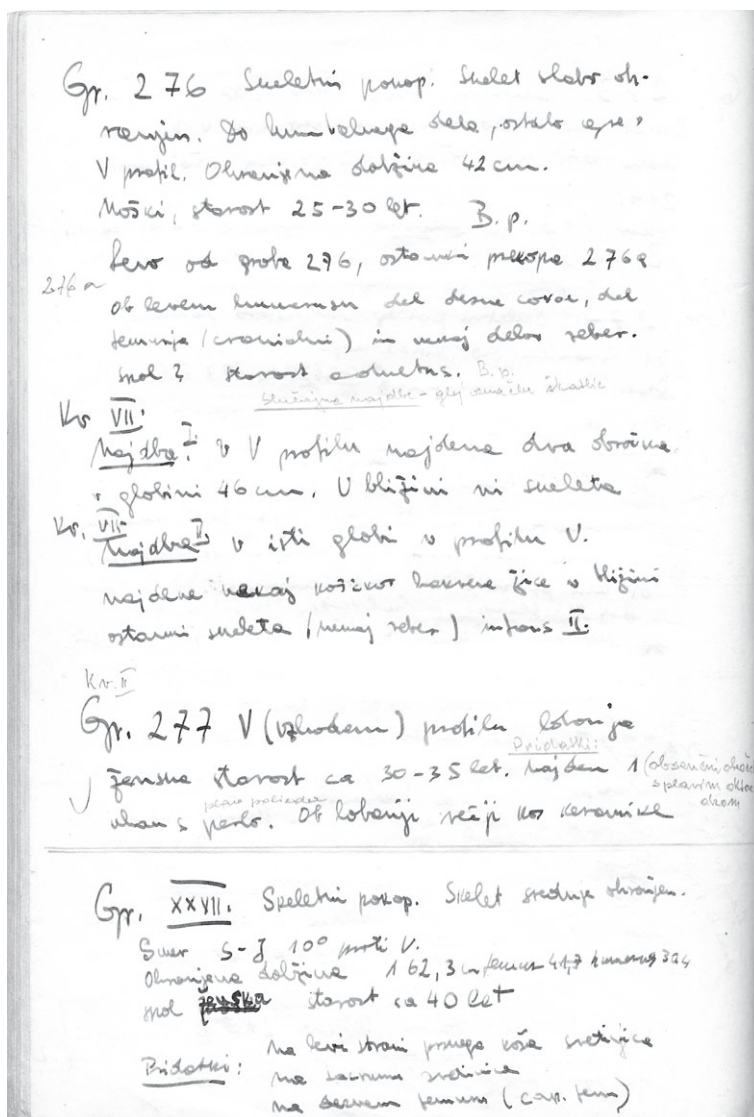 Gr. 276 Skeletni pokop. Skelet slabo oh-
ranjen. Do lumbalnega dela, ostalo gre v
V profil. Ohranjena dolžina 42 cm.
Moški, starost 25-30 let. B. p.
276 a
Levo od groba 276, ostanki prekopa 276a
ob levem humerusu del desne coxae, del
femurja (cranialni) in nekaj delov reber.
spol ? starost adultus. B. p.
Slučajna najdba - glej oznake škatlic
Kv VII.
Najdba I: v V profilu najdena dva obročka
v globini 46 cm. V bližini ni skeleta
Kv. VII
Najdba II. v isti globi v profilu V.
najdena nekaj koščkov bakrene žice v bližini
ostanki skeleta (nekaj reber) infans II.
Kv. II
Gr. 277 V (vzhodnem) profilu lobanja
Pridatki:
ženska starost ca 30-35 let. Najden 1 (obsenčni
s plavim
uhan s perlo. Ob lobanji večji kos keramike
Gr. XXVII. Skeletni pokop. Skelet srednje ohranjen.
Smer S-J 10° proti V.
Ohranjena dolžina 162,3 cm femur 41,7 humerus
spol ženska starost ca 40 let
Pridatki: na levi strani prvega koša svetinjica
na sacrumu svetinjica
na femurju (cap. fem)